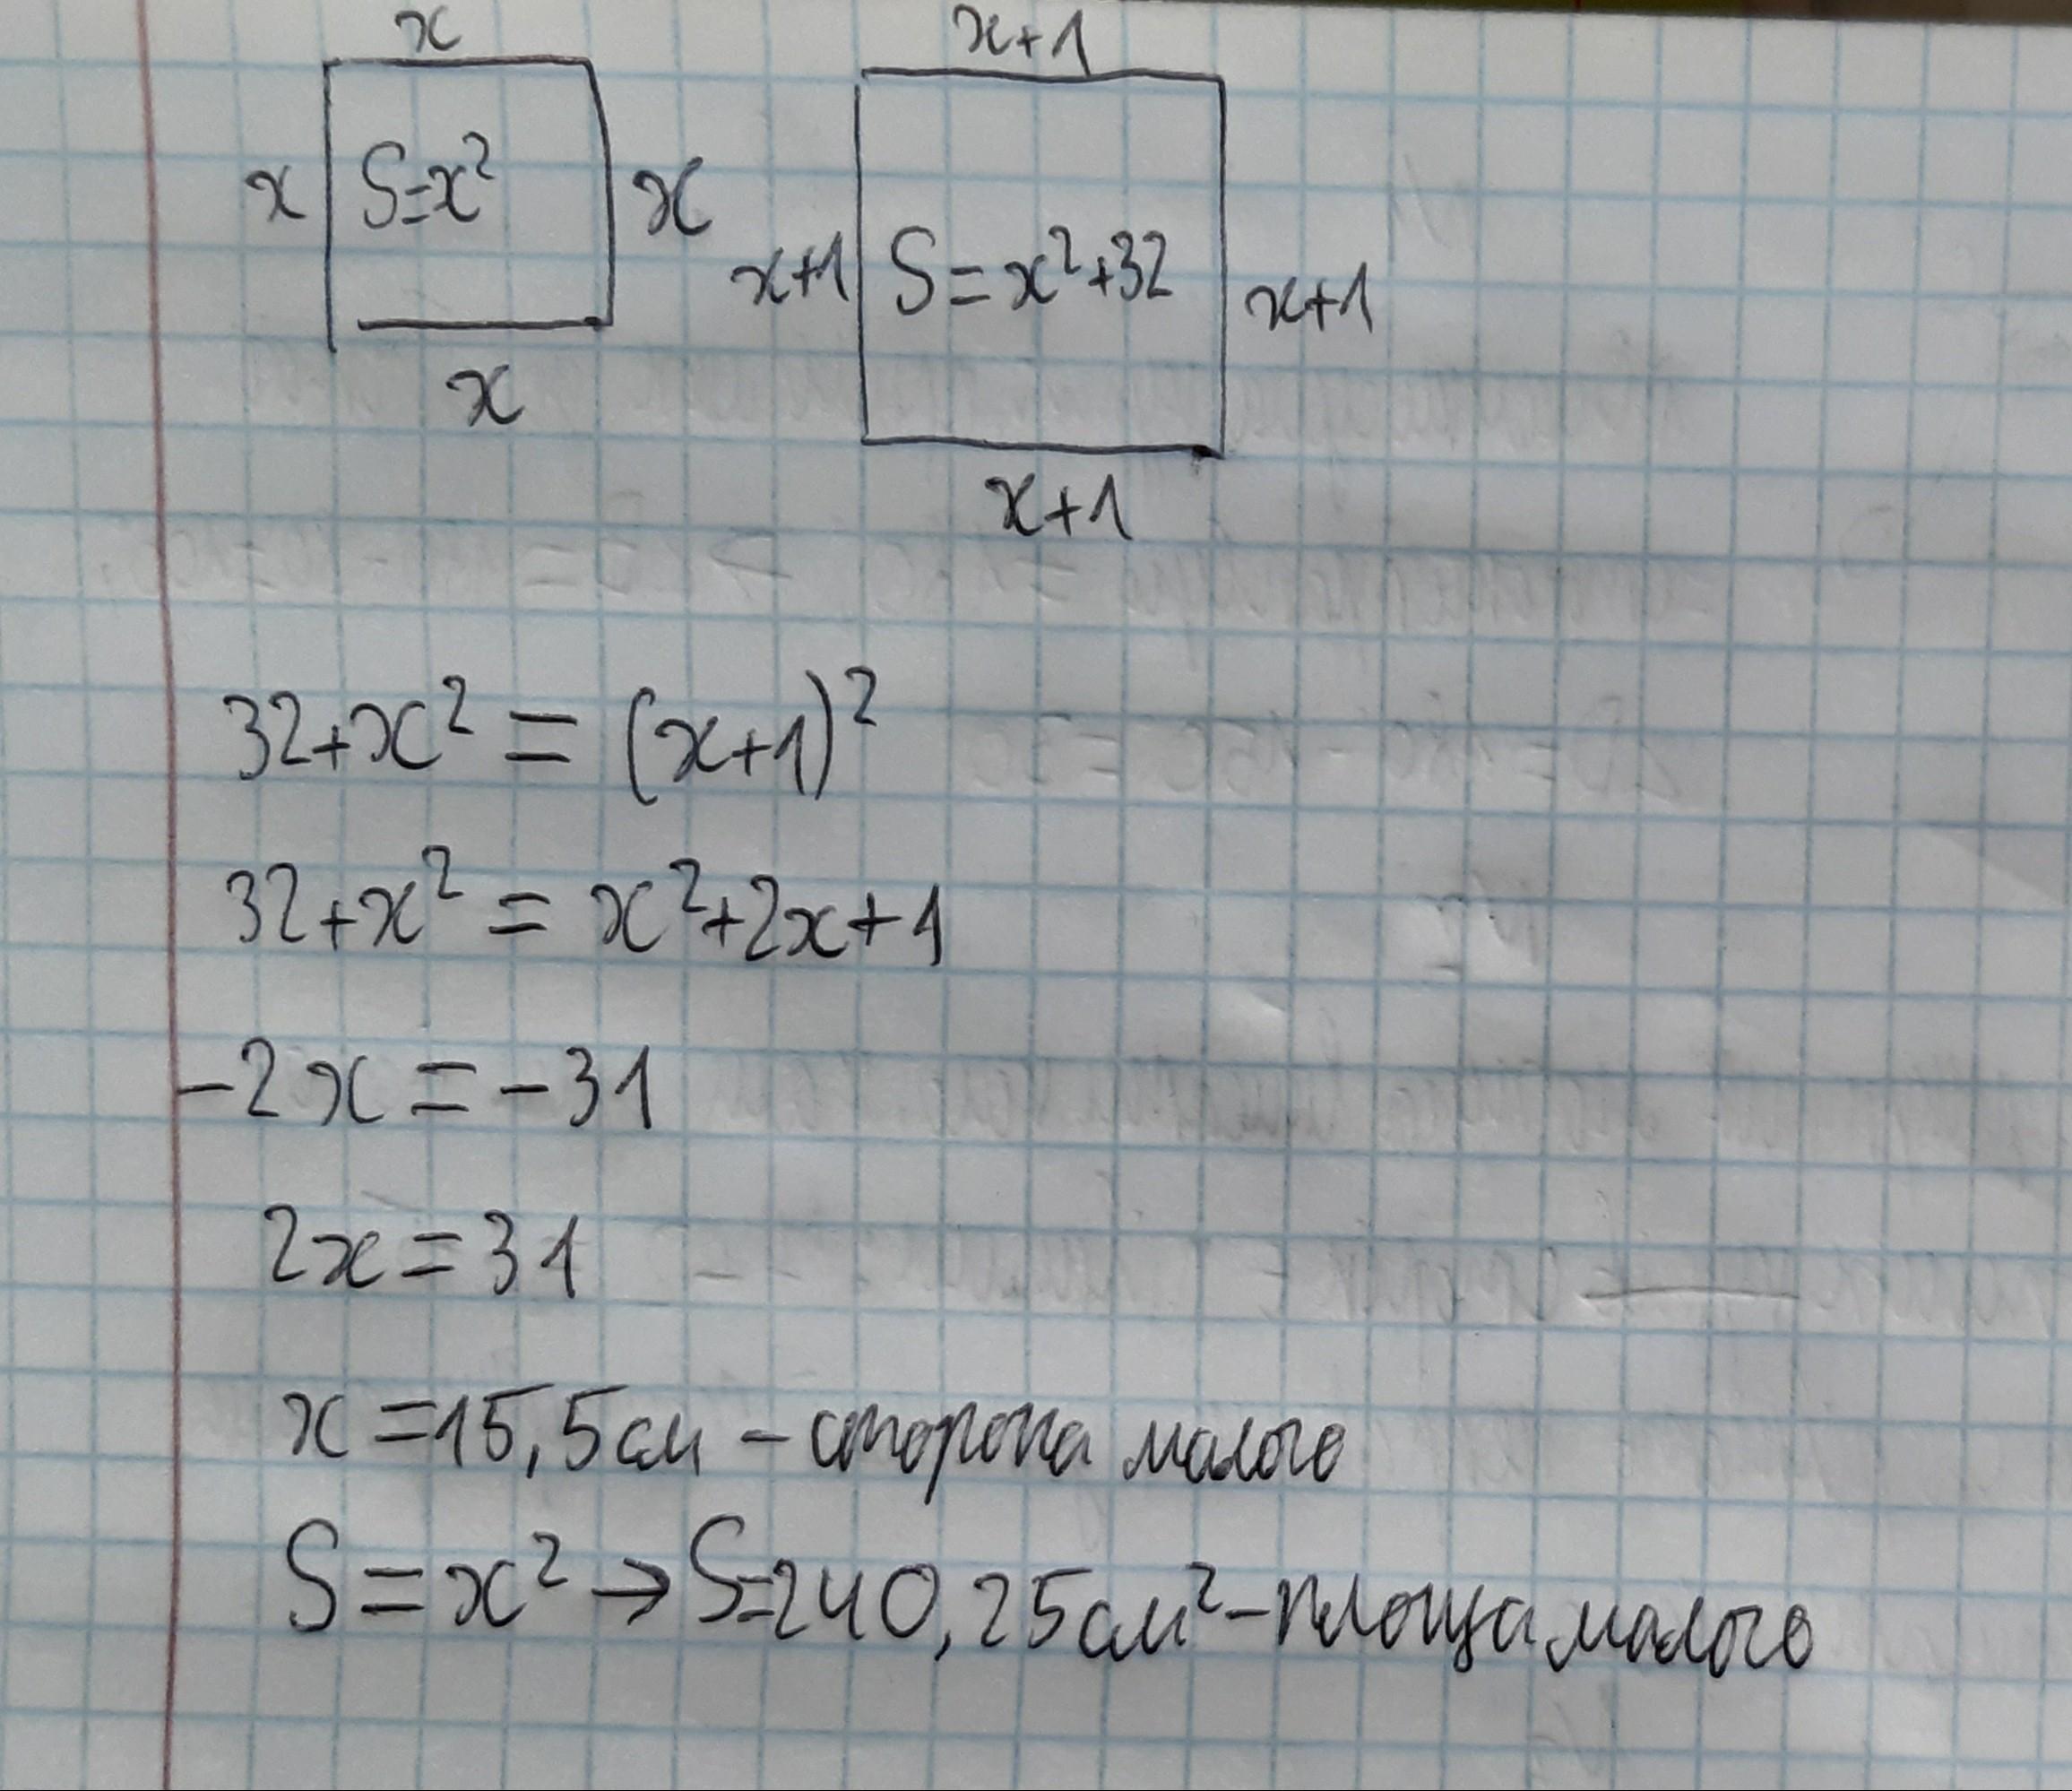 x
x+1
x
S=x²
x
x
x+1
S=x²+32
x+1
x+1
32+x²=(x+1)²
32+x²=x²+2x+1
-2x=-31
2x=31
x=15,5см – сторона малого
S=x²→S=240,25см²–площа малого